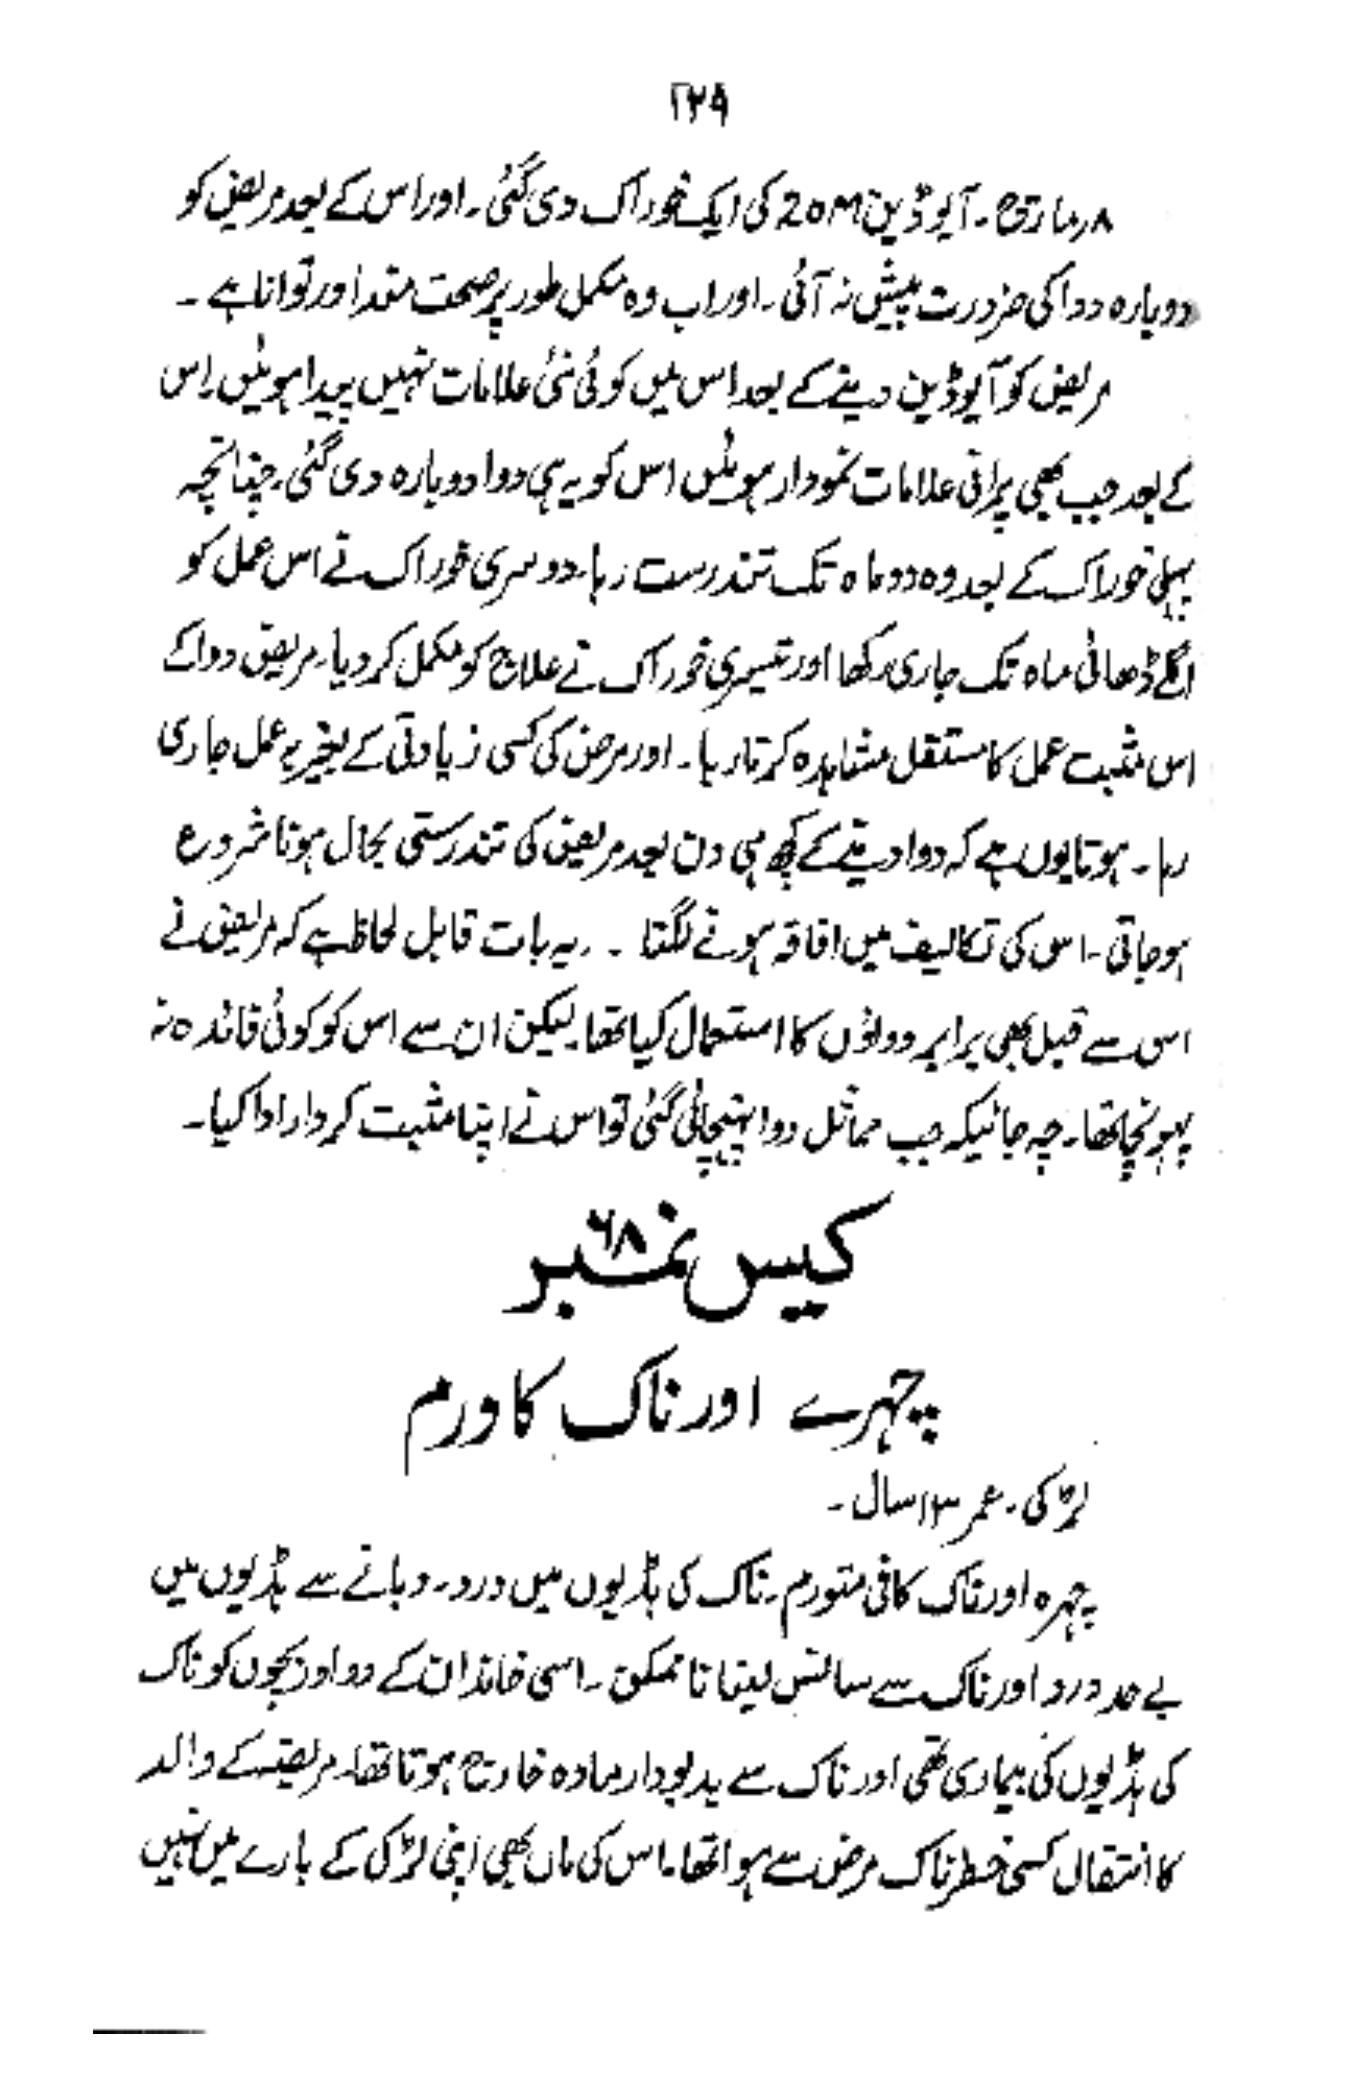 ۲۲۹
۸ مارچ۔ آیوڈین 20M کی ایک خوراک دی گئی۔ اور اس کے بعد مریض کو
دوبارہ دوا کی ضرورت پیش نہ آئی۔ اور اب وہ مکمل طور پر صحت مند اور توانا ہے۔
مریض کو آیوڈین دینے کے بعد اس میں کوئی نئی علامات نہیں پیدا ہوئیں۔ اس
کے بعد جب بھی پرانی علامات نمودار ہوئیں اس کو یہ ہی دوا دوبارہ دی گئی۔ چنانچہ
پہلی خوراک کے بعد وہ دو ماہ تک تندرست رہا۔ دوسری خوراک نے اس عمل کو
اگلے ڈھائی ماہ تک جاری رکھا اور تیسری خوراک نے علاج کو مکمل کر دیا۔ مریض دوا کے
اس مثبت عمل کا مستقل مشاہدہ کرتا رہا۔ اور مرض کی کسی زیادتی کے بغیر یہ عمل جاری
رہا۔ ہوتا یوں ہے کہ دوا دینے کے کچھ ہی دن بعد مریض کی تندرستی بحال ہونا شروع
ہو جاتی۔ اس کی تکالیف میں افاقہ ہونے لگتا ۔ ۔ یہ بات قابل لحاظ ہے کہ مریض نے
اس سے قبل بھی برابر دواؤں کا استعمال کیا تھا لیکن ان سے اس کو کوئی فائدہ نہ
پہونچا تھا۔ چہ جائیکہ جب مماثل دوا پہنچائی گئی تو اس نے اپنا مثبت کردار ادا کیا۔
کیس نمبر ۶۸
چہرے اور ناک کا ورم
لڑکی۔ عمر ۱۳ سال۔
چہرہ اور ناک کافی متورم۔ ناک کی ہڈیوں میں درد۔ دبانے سے ہڈیوں میں
بے حد درد اور ناک سے سانس لینا ناممکن۔ اسی خاندان کے دو اور بچوں کو ناک
کی ہڈیوں کی بیماری تھی اور ناک سے بدبودار مادہ خارج ہوتا تھا۔ مریضہ کے والد
کا انتقال کسی خطرناک مرض سے ہوا تھا۔ اس کی ماں بھی اپنی لڑکی کے بارے میں نہیں